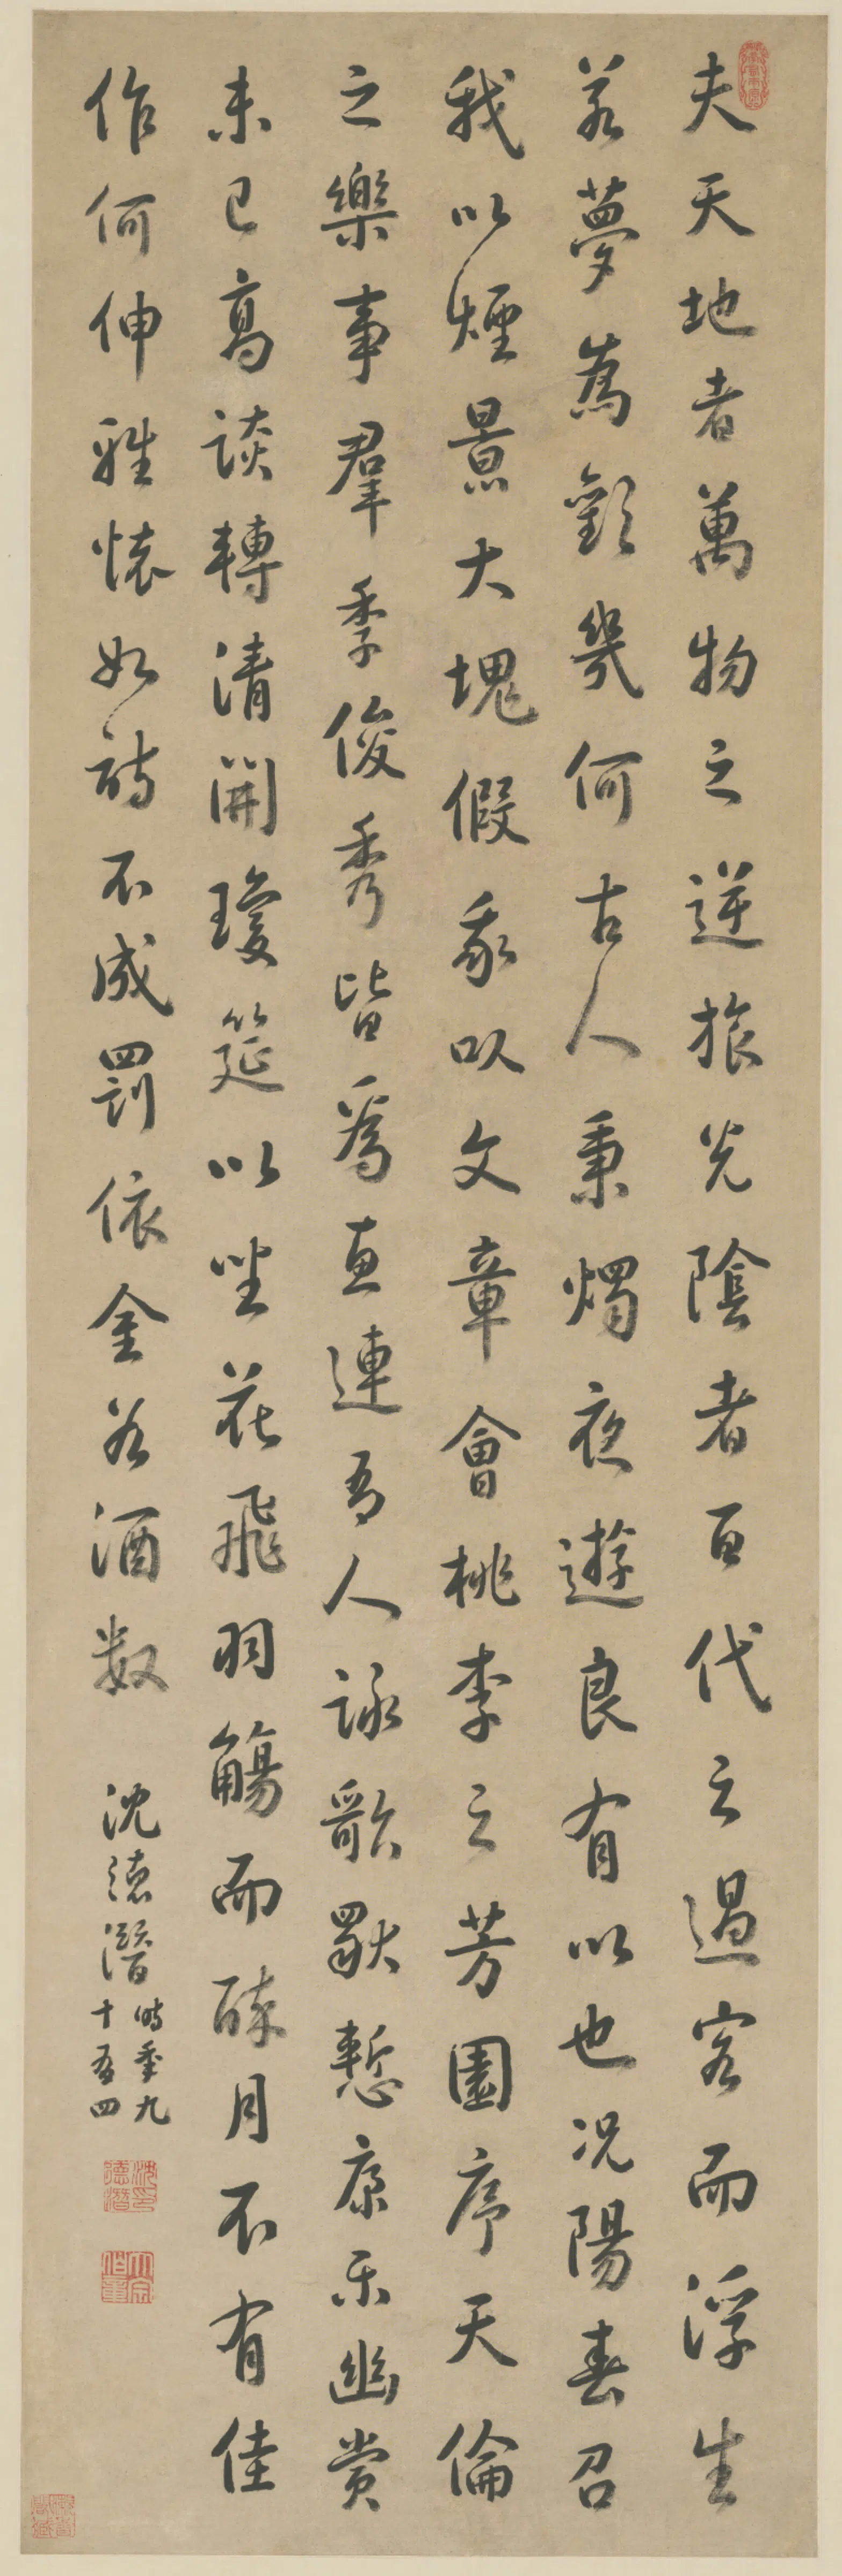 夫天地者萬物之逆旅光陰者百代之過客而浮生
若夢為歡幾何古人秉燭夜遊良有以也況陽春召
我以煙景大塊假我以文章會桃李之芳園序天倫
之樂事羣季俊秀皆為惠連吾人詠歌獨慙康樂幽賞
未已高談轉清開瓊筵以坐花飛羽觴而醉月不有佳
作何伸雅懷如詩不成罰依金谷酒數
沈德潛
時季九
十有四
沈印德潛